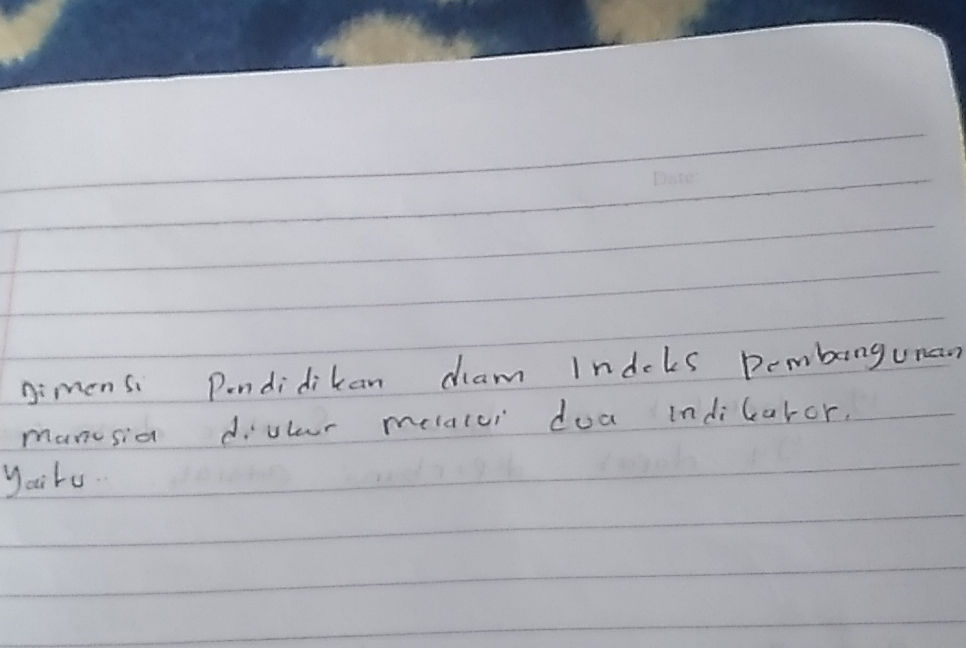 Date:
Dimensi Pendidikan dlam Indeks Pembangunan
manusia diukur melalui dua indikator.
Yaitu..